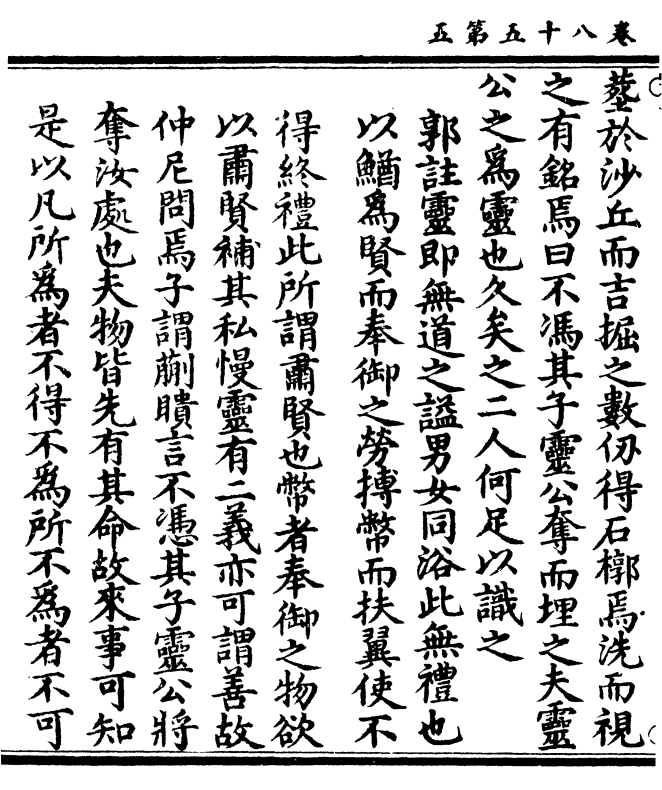 卷八十五第五
塟於沙丘而吉掘之數仞得石槨焉洗而視
之有銘焉曰不馮其子靈公奪而埋之夫靈
公之爲靈也久矣之二人何足以識之
郭註靈即無道之謚男女同浴此無禮也
以鰌爲賢而奉御之勞搏幣而扶翼使不
得終禮此所謂肅賢也幣者奉御之物欲
以肅賢補其私慢靈有二義亦可謂善故
仲尼問焉子謂蒯聵言不憑其子靈公將
奪汝處也夫物皆先有其命故來事可知
是以凡所爲者不得不爲所不爲者不可